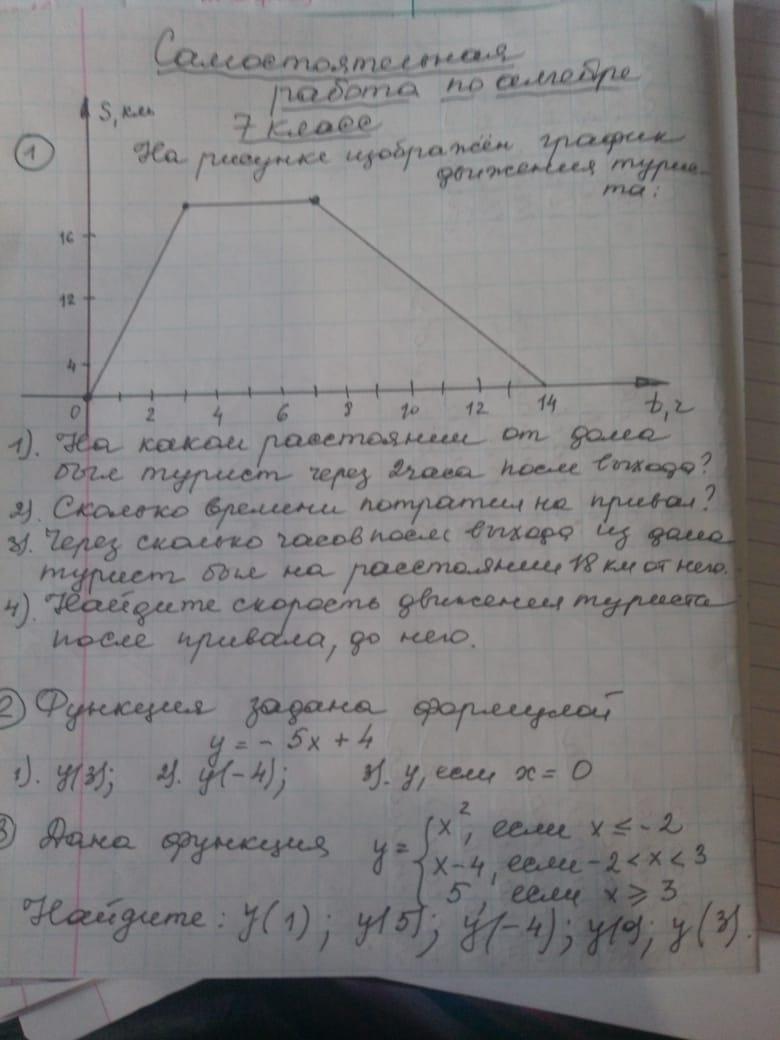 Самостоятельная
работа по алгебре
7 класс
S, км
1 На рисунке изображён график
движения турис-
та:
16
12
4
0 2 4 6 8 10 12 14 t, г
1). На каком расстоянии от дома
был турист через 2 часа после выхода?
2). Сколько времени потратил на привал?
3). Через сколько часов после выхода из дома
турист был на расстоянии 18 км от него.
4). Найдите скорость движения туриста
после привала, до него.
2 Функция задана формулой
y = - 5x + 4
1). y(3); 2). y(-4); 3). y, если x = 0
3 Дана функция y = { x², если x ≤ -2
x-4, если -2 < x < 3
5, если x ≥ 3
Найдите: y(1); y(5); y(-4); y(0); y(3).